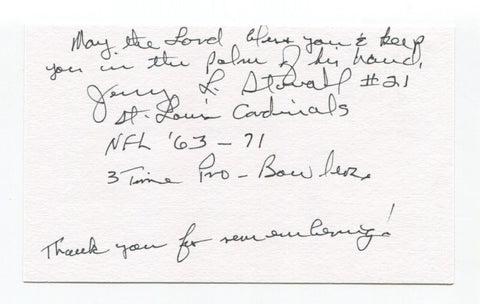 May the Lord bless you & keep
you in the palm of his hand,
Jerry L. Stovall #21
St. Louis Cardinals
NFL '63 - 71
3 Time Pro - Bowler.
Thank you for remembering!